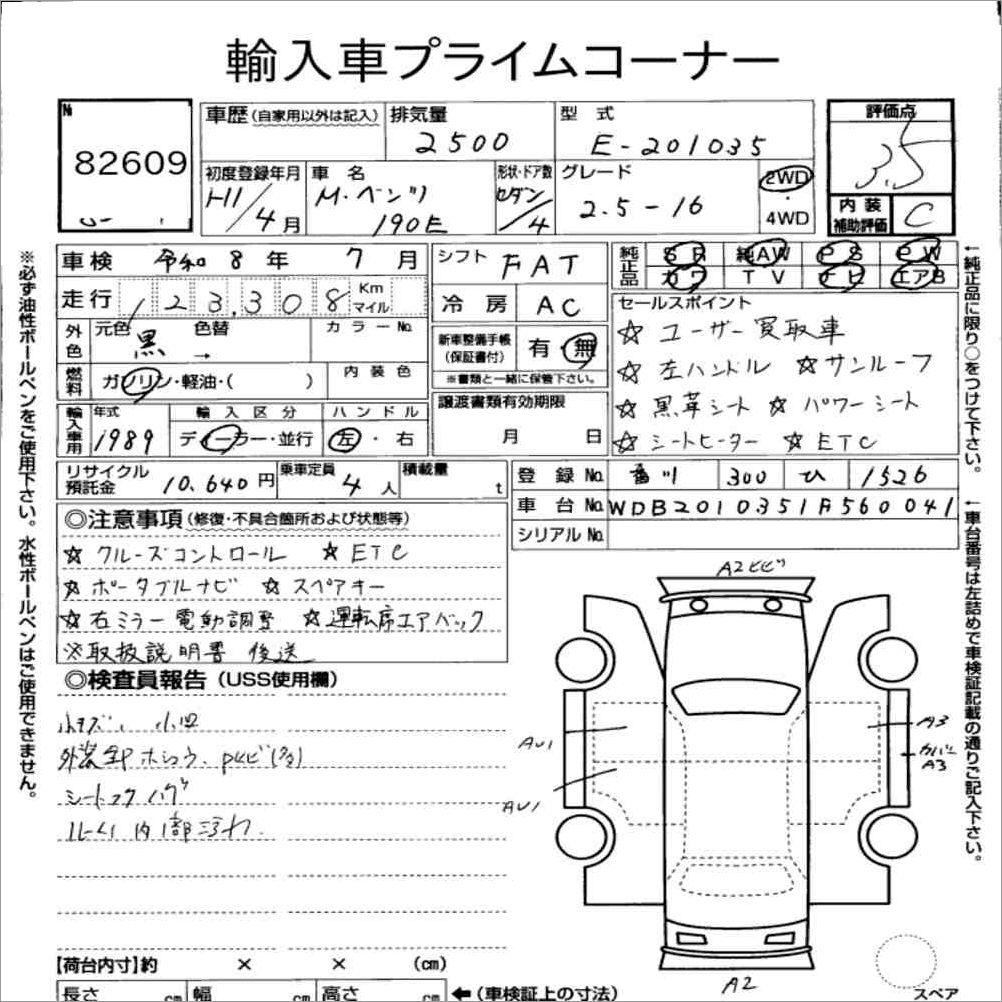 輸入車プライムコーナー
№
82609
車歴 (自家用以外は記入) 排気量 2500 型式 E-201035 評価点 3.5
初度登録年月 H1/4月 車名 M・ベンツ 190E 形状・ドア数 セダン/4 グレード 2.5-16 2WD・4WD
内装補助評価 C
車検 令和8年 7月 シフト FAT 純正品 SR 純AW PS PW
カワ TV ナビ エアB
走行 123,308 Km マイル 冷房 AC セールスポイント
外色 元色 黒 色替 → カラーNo.
新車整備手帳 (保証書付) 有・無
※書類と一緒に保管下さい。
☆ ユーザー買取車
☆ 左ハンドル ☆ サンルーフ
☆ 黒革シート ☆ パワーシート
☆ シートヒーター ☆ ETC
燃料 ガソリン・軽油・( ) 内装色
譲渡書類有効期限 月 日
輸入車用 年式 1989 輸入区分 ディーラー・並行 ハンドル 左・右
リサイクル預託金 10.640円 乗車定員 4人 積載量 t
登録No. 300 ひ 1526
車台No. WDB2010351A560041
シリアルNo.
◎注意事項 (修復・不具合箇所および状態等)
☆ クルーズコントロール ☆ ETC
☆ ポータブルナビ ☆ スペアキー
☆ 右ミラー電動調整 ☆ 運転席エアバック
※取扱説明書 後送
◎検査員報告 (USS使用欄)
小キズ、小凹
外装全P ホショウ、PLヒビ(多)
シート
内部汚れ
A2ヒビ
AU1
AU1
A3
カバー A3
A2
スペア
【荷台内寸】約 × × (cm)
長さ cm 幅 cm 高さ cm ←(車検証上の寸法)
※必ず油性ボールペンをご使用下さい。水性ボールペンはご使用できません。
←純正品に限り○をつけて下さい。
←車台番号は左詰めで車検証記載の通りご記入下さい。